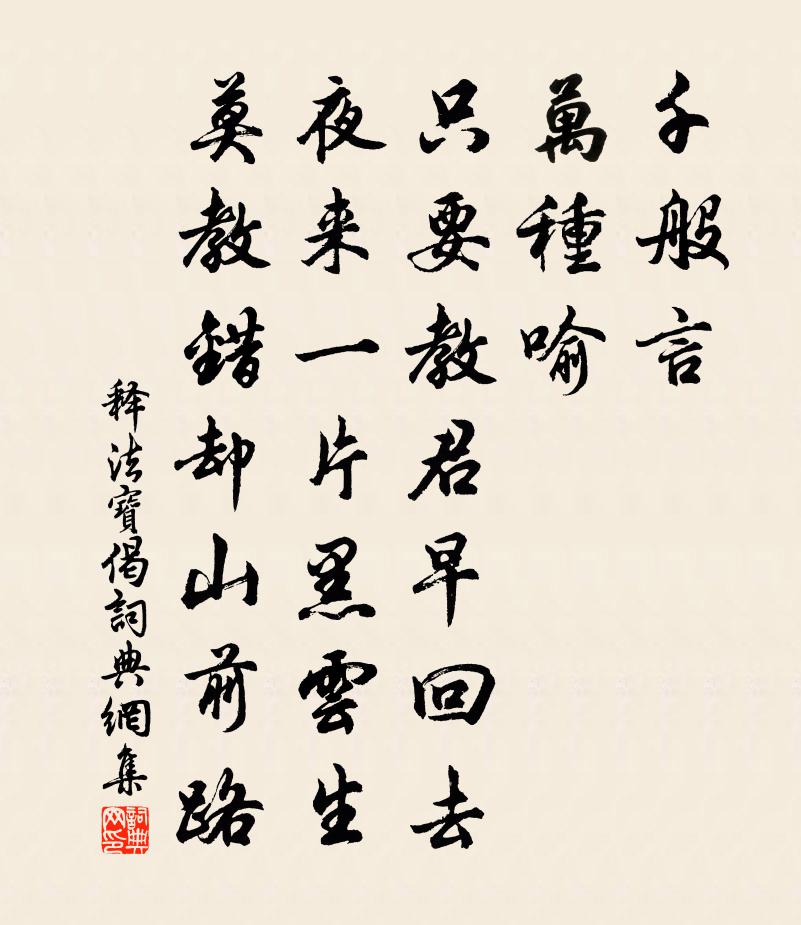 千般言
萬種喻
只要教君早回去
夜来一片黑雲生
莫教錯却山前路
释法寶偈詞典網集
詞典
网印